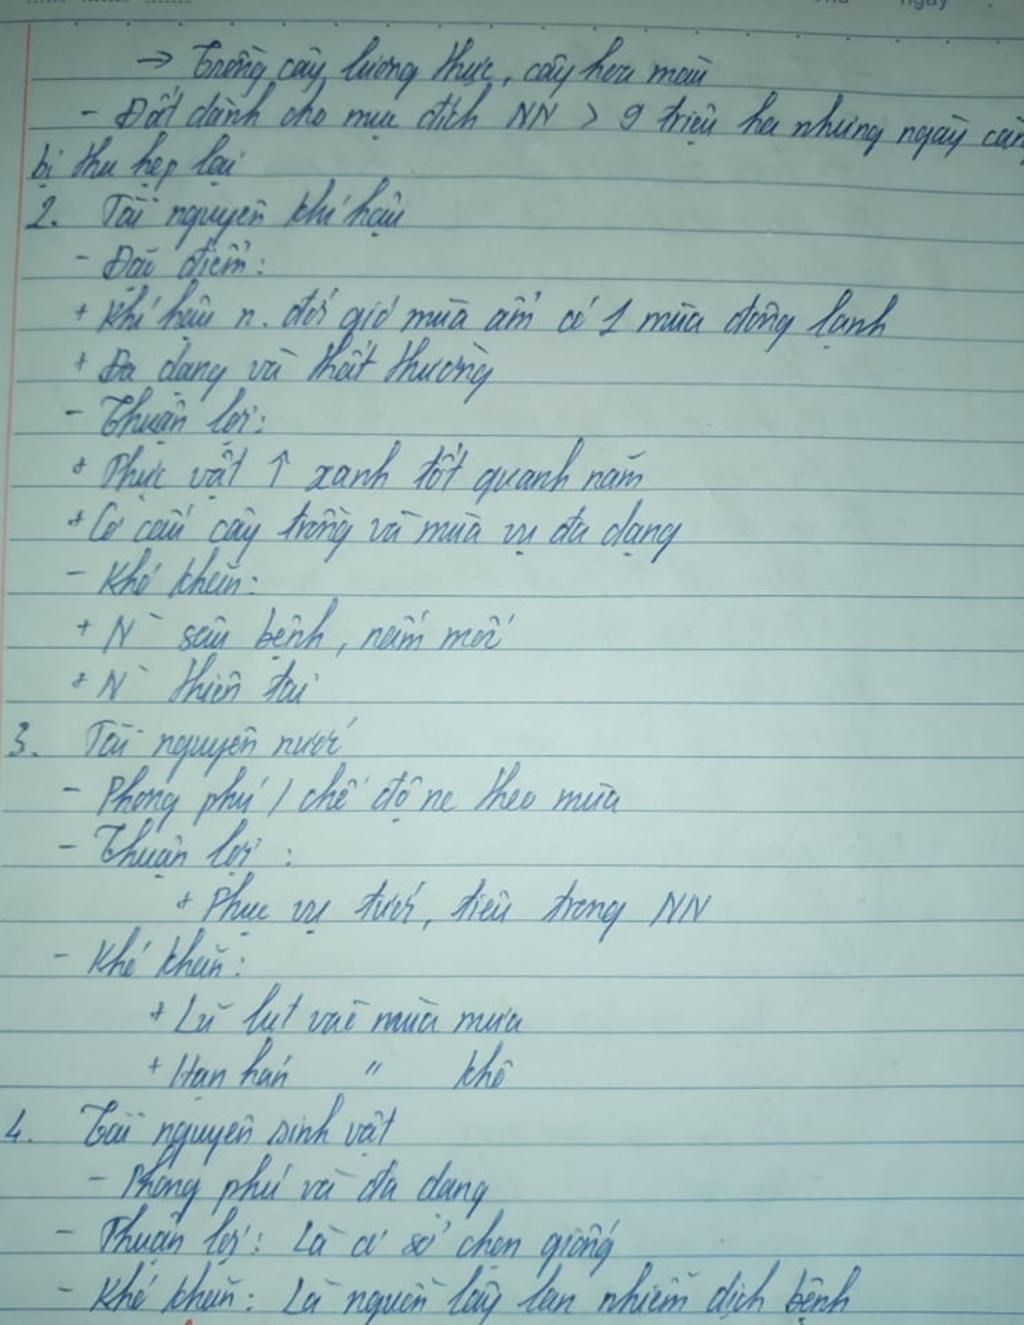 → Trồng cây lương thực, cây hoa màu
- Đất dành cho mục đích NN > 9 triệu ha nhưng ngày càng
bị thu hẹp lại
2. Tài nguyên khí hậu
- Đặc điểm:
+ Khí hậu n. đới gió mùa ẩm có 1 mùa đông lạnh
+ Đa dạng và thất thường
- Thuận lợi:
+ Thực vật ↑ xanh tốt quanh năm
+ Cơ cấu cây trồng và mùa vụ đa dạng
- Khó khăn:
+ N` sâu bệnh, nấm mốc
+ N` thiên tai
3. Tài nguyên nước
- Phong phú / chế độ nc theo mùa
- Thuận lợi :
+ Phục vụ tưới, tiêu trong NN
- Khó khăn:
+ Lũ lụt vào mùa mưa
+ Hạn hán " khô
4. Tài nguyên sinh vật
- Phong phú và đa dạng
- Thuận lợi: Là cơ sở chọn giống
- Khó khăn: Là nguồn lây lan nhiễm dịch bệnh